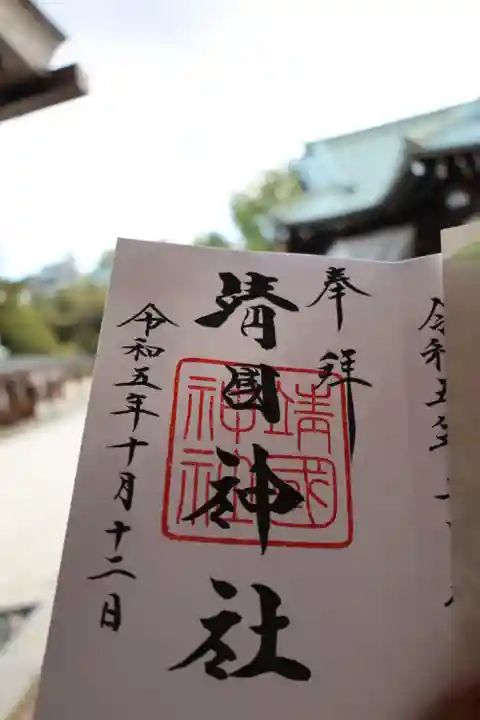 奉拝
靖國神社
靖國神社
令和五年十月十二日